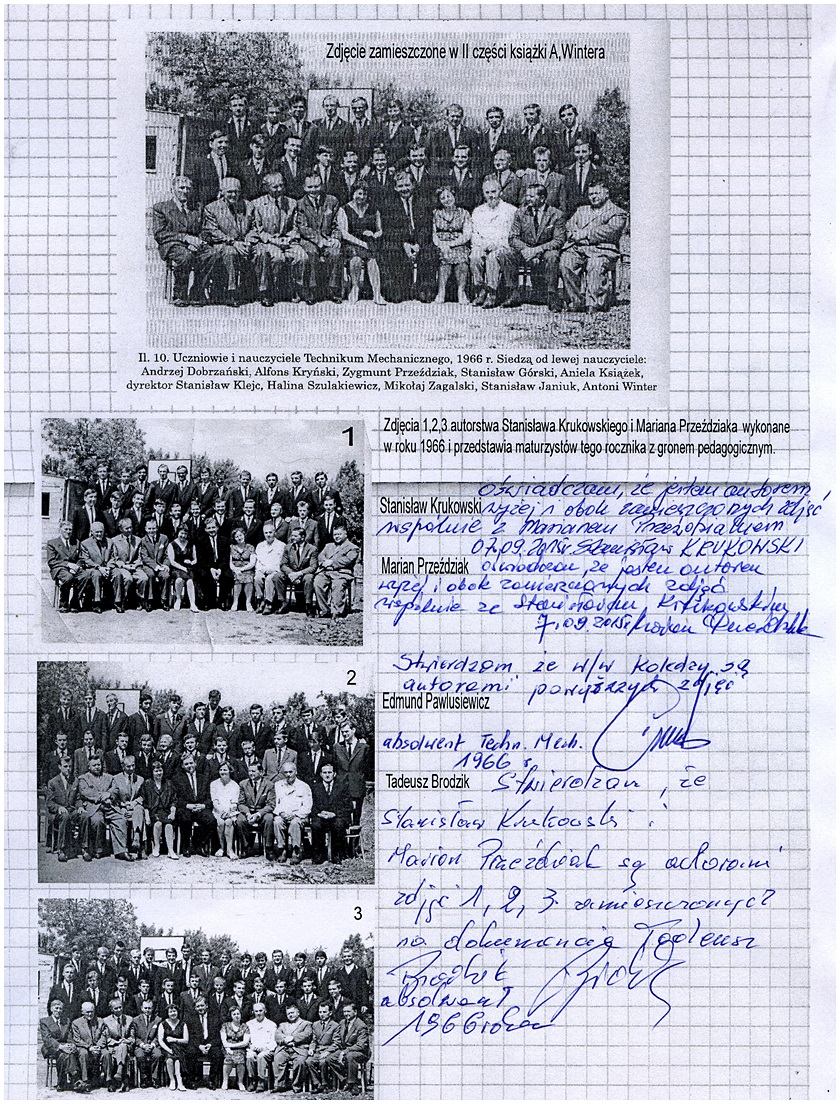 Zdjęcie zamieszczone w II części książki A,Wintera
Il. 10. Uczniowie i nauczyciele Technikum Mechanicznego, 1966 r. Siedzą od lewej nauczyciele:
Andrzej Dobrzański, Alfons Kryński, Zygmunt Przeździak, Stanisław Górski, Aniela Książek,
dyrektor Stanisław Klejc, Halina Szulakiewicz, Mikołaj Zagalski, Stanisław Janiuk, Antoni Winter
1
Zdjęcia 1,2,3 autorstwa Stanisława Krukowskiego i Mariana Przeździaka wykonane
w roku 1966 i przedstawia maturzystów tego rocznika z gronem pedagogicznym.
Oświadczam, że jestem autorem
Stanisław Krukowski wyżej i obok zamieszczonych zdjęć
wspólnie z Marianem Przeździakiem
07.09.2015r Stanisław KRUKOWSKI
Marian Przeździak oświadczam, że jestem autorem
wyżej i obok zamieszczonych zdjęć
wspólnie ze Stanisławem Krukowskim
7.09.2015r Marian Przeździak
2
Stwierdzam że w/w koledzy są
autorami powyższych zdjęć
Edmund Pawlusiewicz
absolwent Techn. Mech.
1966 r.
Tadeusz Brodzik Stwierdzam, że
Stanisław Krukowski i
Marian Przeździak są autorami
3
zdjęć 1, 2, 3 zamieszczonych
na Tadeusz
Brodzik
absolwent
1966 roku